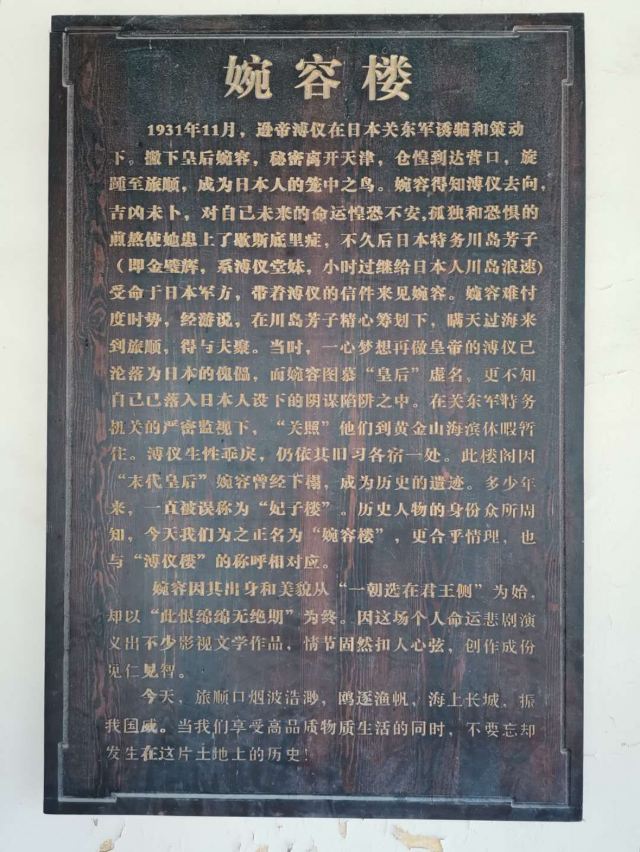 婉容楼
1931年11月，逊帝溥仪在日本关东军诱骗和策动
下。撇下皇后婉容，秘密离开天津，仓惶到达营口，旋
踵至旅顺，成为日本人的笼中之鸟。婉容得知溥仪去向，
吉凶未卜，对自己未来的命运惶恐不安，孤独和恐惧的
煎熬使她患上了歇斯底里症，不久后日本特务川岛芳子
（即金璧辉，系溥仪堂妹，小时过继给日本人川岛浪速）
受命于日本军方，带着溥仪的信件来见婉容。婉容难忖
度时势，经游说，在川岛芳子精心筹划下，瞒天过海来
到旅顺，得与夫聚。当时，一心梦想再做皇帝的溥仪已
沦落为日本的傀儡，而婉容图慕“皇后”虚名，更不知
自己已落入日本人设下的阴谋陷阱之中。在关东军特务
机关的严密监视下，“关照”他们到黄金山海滨休暇暂
住。溥仪生性乖戾，仍依其旧习各宿一处。此楼阁因
“末代皇后”婉容曾经下榻，成为历史的遗迹。多少年
来，一直被误称为“妃子楼”。历史人物的身份众所周
知，今天我们为之正名为“婉容楼”，更合乎情理，也
与“溥仪楼”的称呼相对应。
婉容因其出身和美貌从“一朝选在君王侧”为始，
却以“此恨绵绵无绝期”为终。因这场个人命运悲剧演
义出不少影视文学作品，情节固然扣人心弦，创作成份
见仁见智。
今天，旅顺口烟波浩渺，鸥逐渔帆，海上长城，振
我国威。当我们享受高品质物质生活的同时，不要忘却
发生在这片土地上的历史！